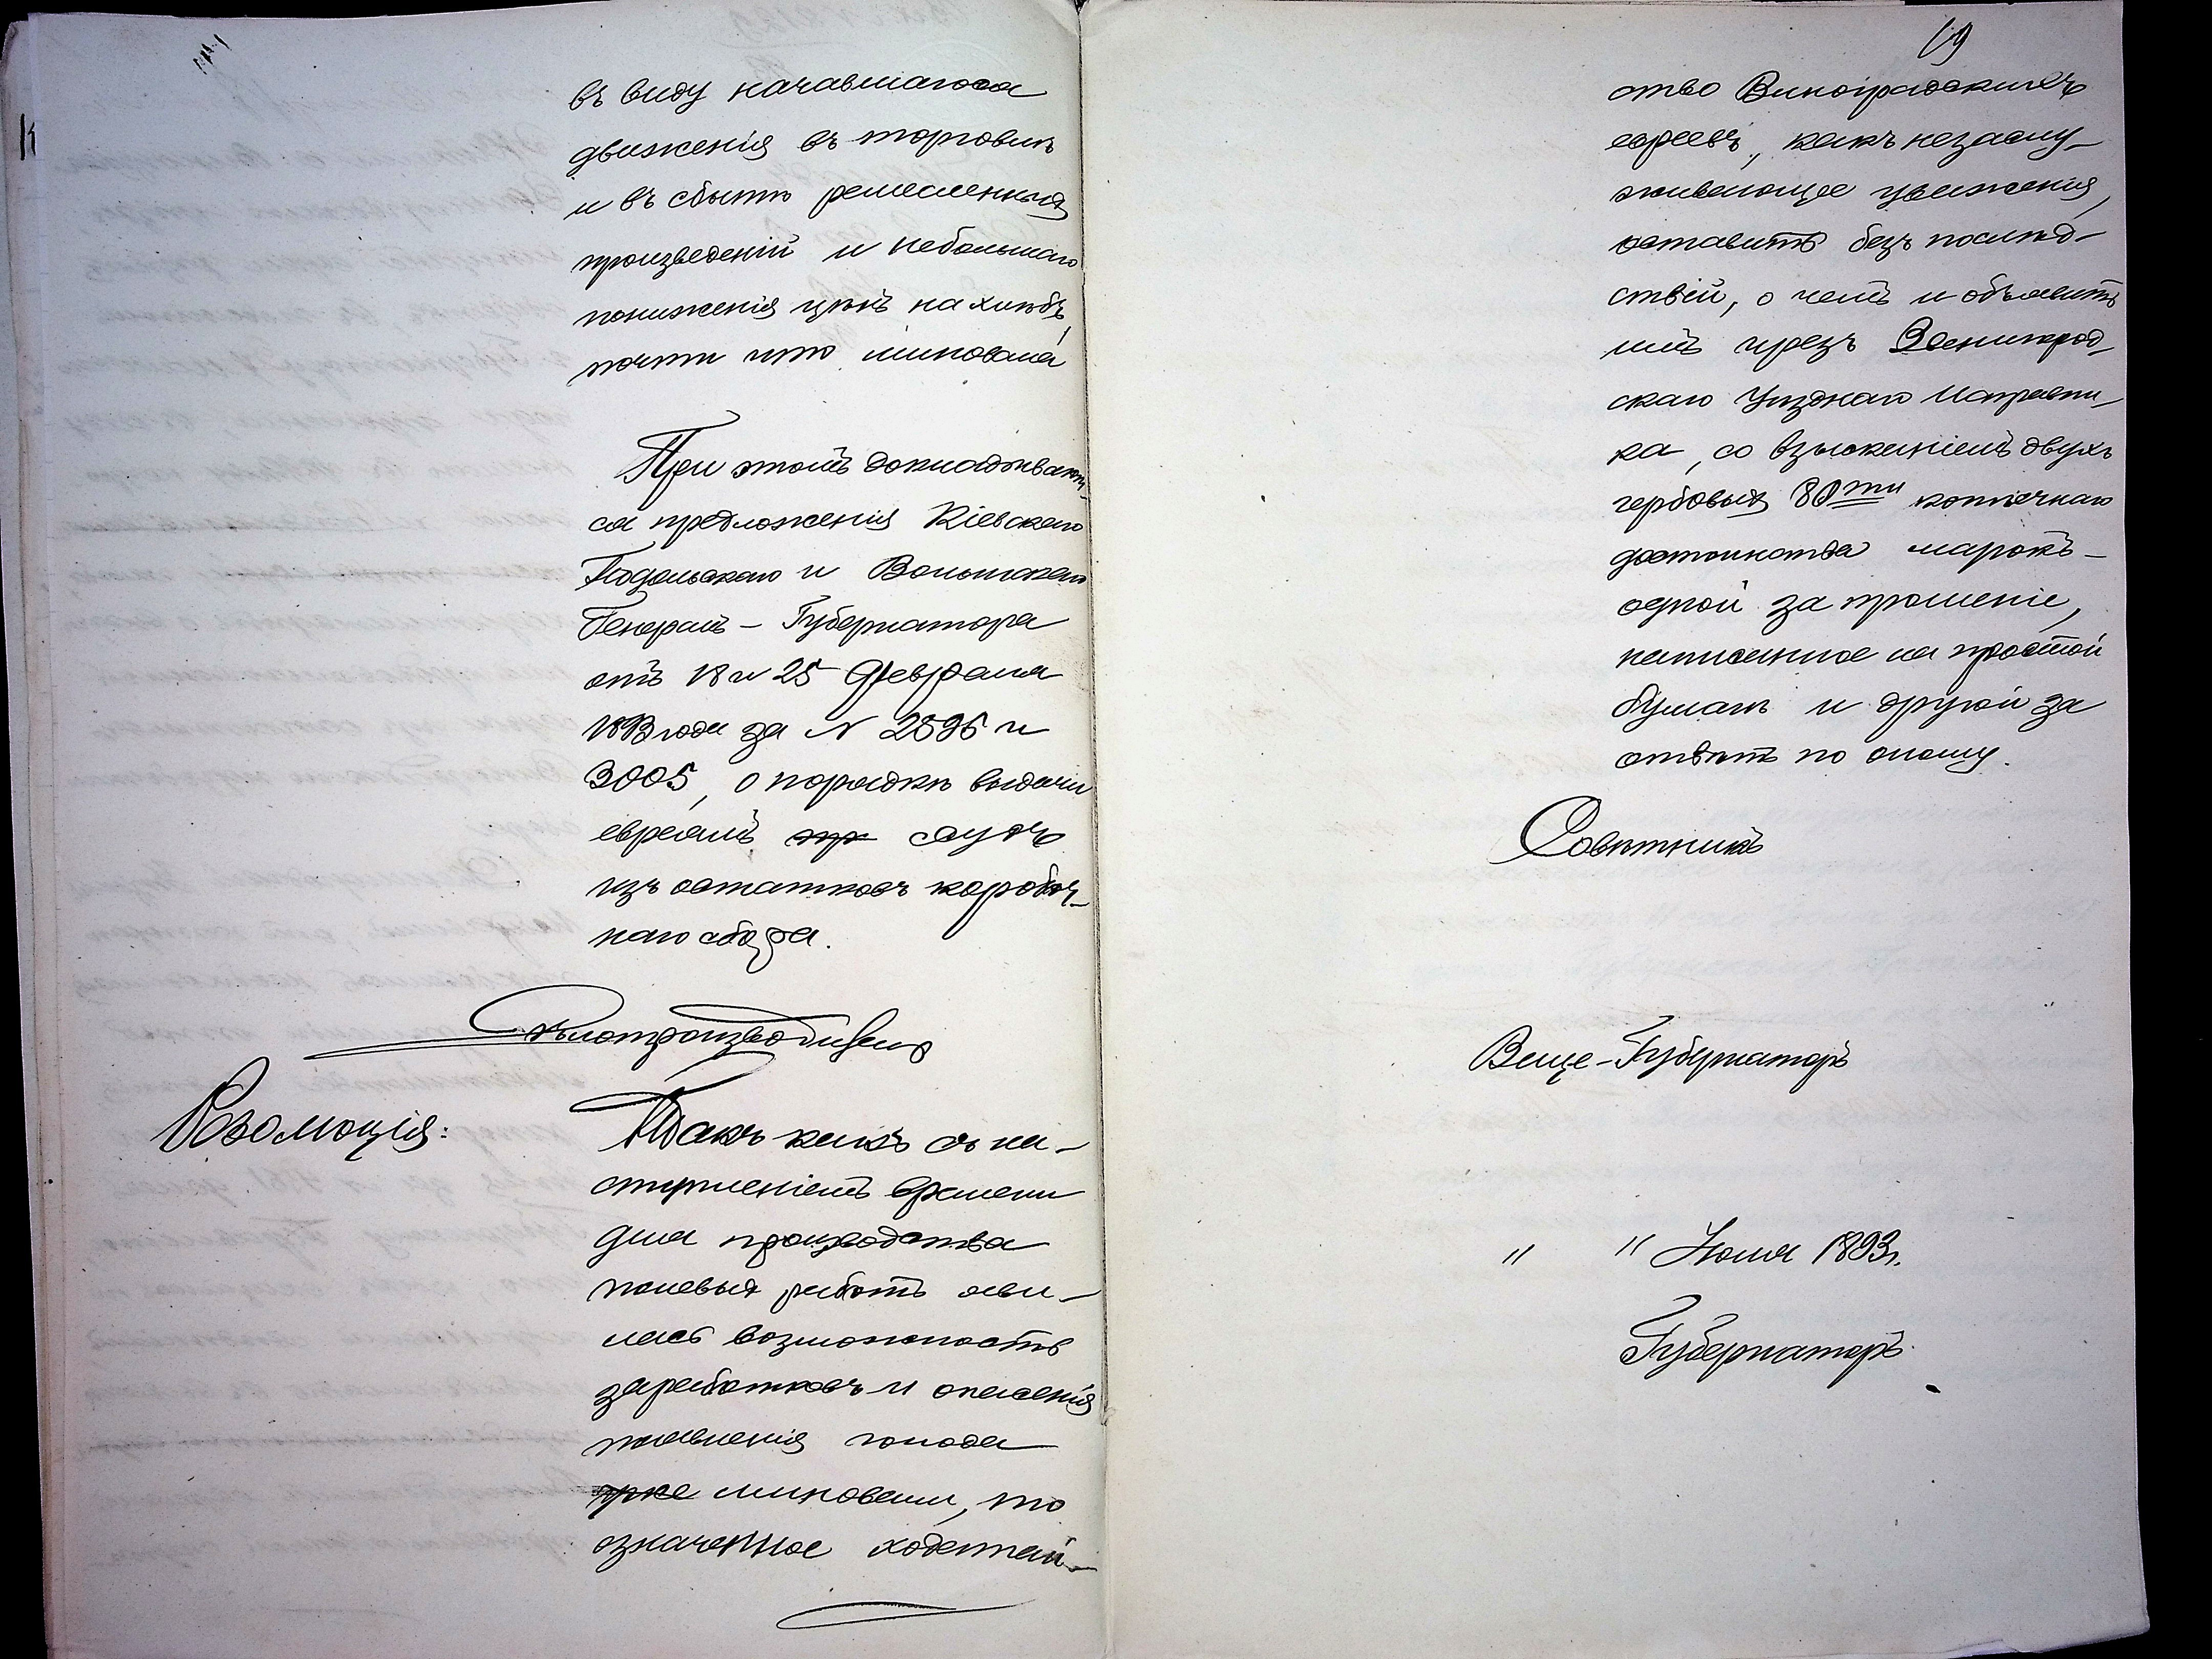 въ виду начавшагося
движенія въ торговлѣ
и въ сбытѣ ремесленныхъ
произведеній и небольшаго
пониженія цѣнъ на хлѣбъ,
почти что миновала
При этомъ докладывают-
ся предложенія Кіевскаго
Подольскаго и Волынскаго
Генералъ-Губернатора
отъ 18 и 25 февраля
1893 года за № 2595 и
3005, о порядкѣ выдачи
евреямъ ссудъ
изъ остатковъ коробоч-
наго сбора.
Дѣлопроизводитель
Резолюція:
Такъ какъ съ на-
ступленіемъ времени
для производства
полевыхъ работъ яви-
лась возможность
заработковъ и опасенія
появленія голода
уже миновали, то
означенное ходатай-
19
ство Виноградскихъ
евреевъ, какъ незаслу-
живающее уваженія,
оставить безъ послѣд-
ствій, о чемъ и объявить
имъ чрезъ Звенигород-
скаго Уѣзднаго Исправни-
ка, со взысканіемъ двухъ
гербовыхъ 80ти копѣечнаго
достоинства марокъ-
одной за прошеніе,
написанное на простой
бумагѣ и другой за
отвѣтъ по оному.
Совѣтникъ
Вице-Губернаторъ
" " Іюля 1893 г.
Губернаторъ